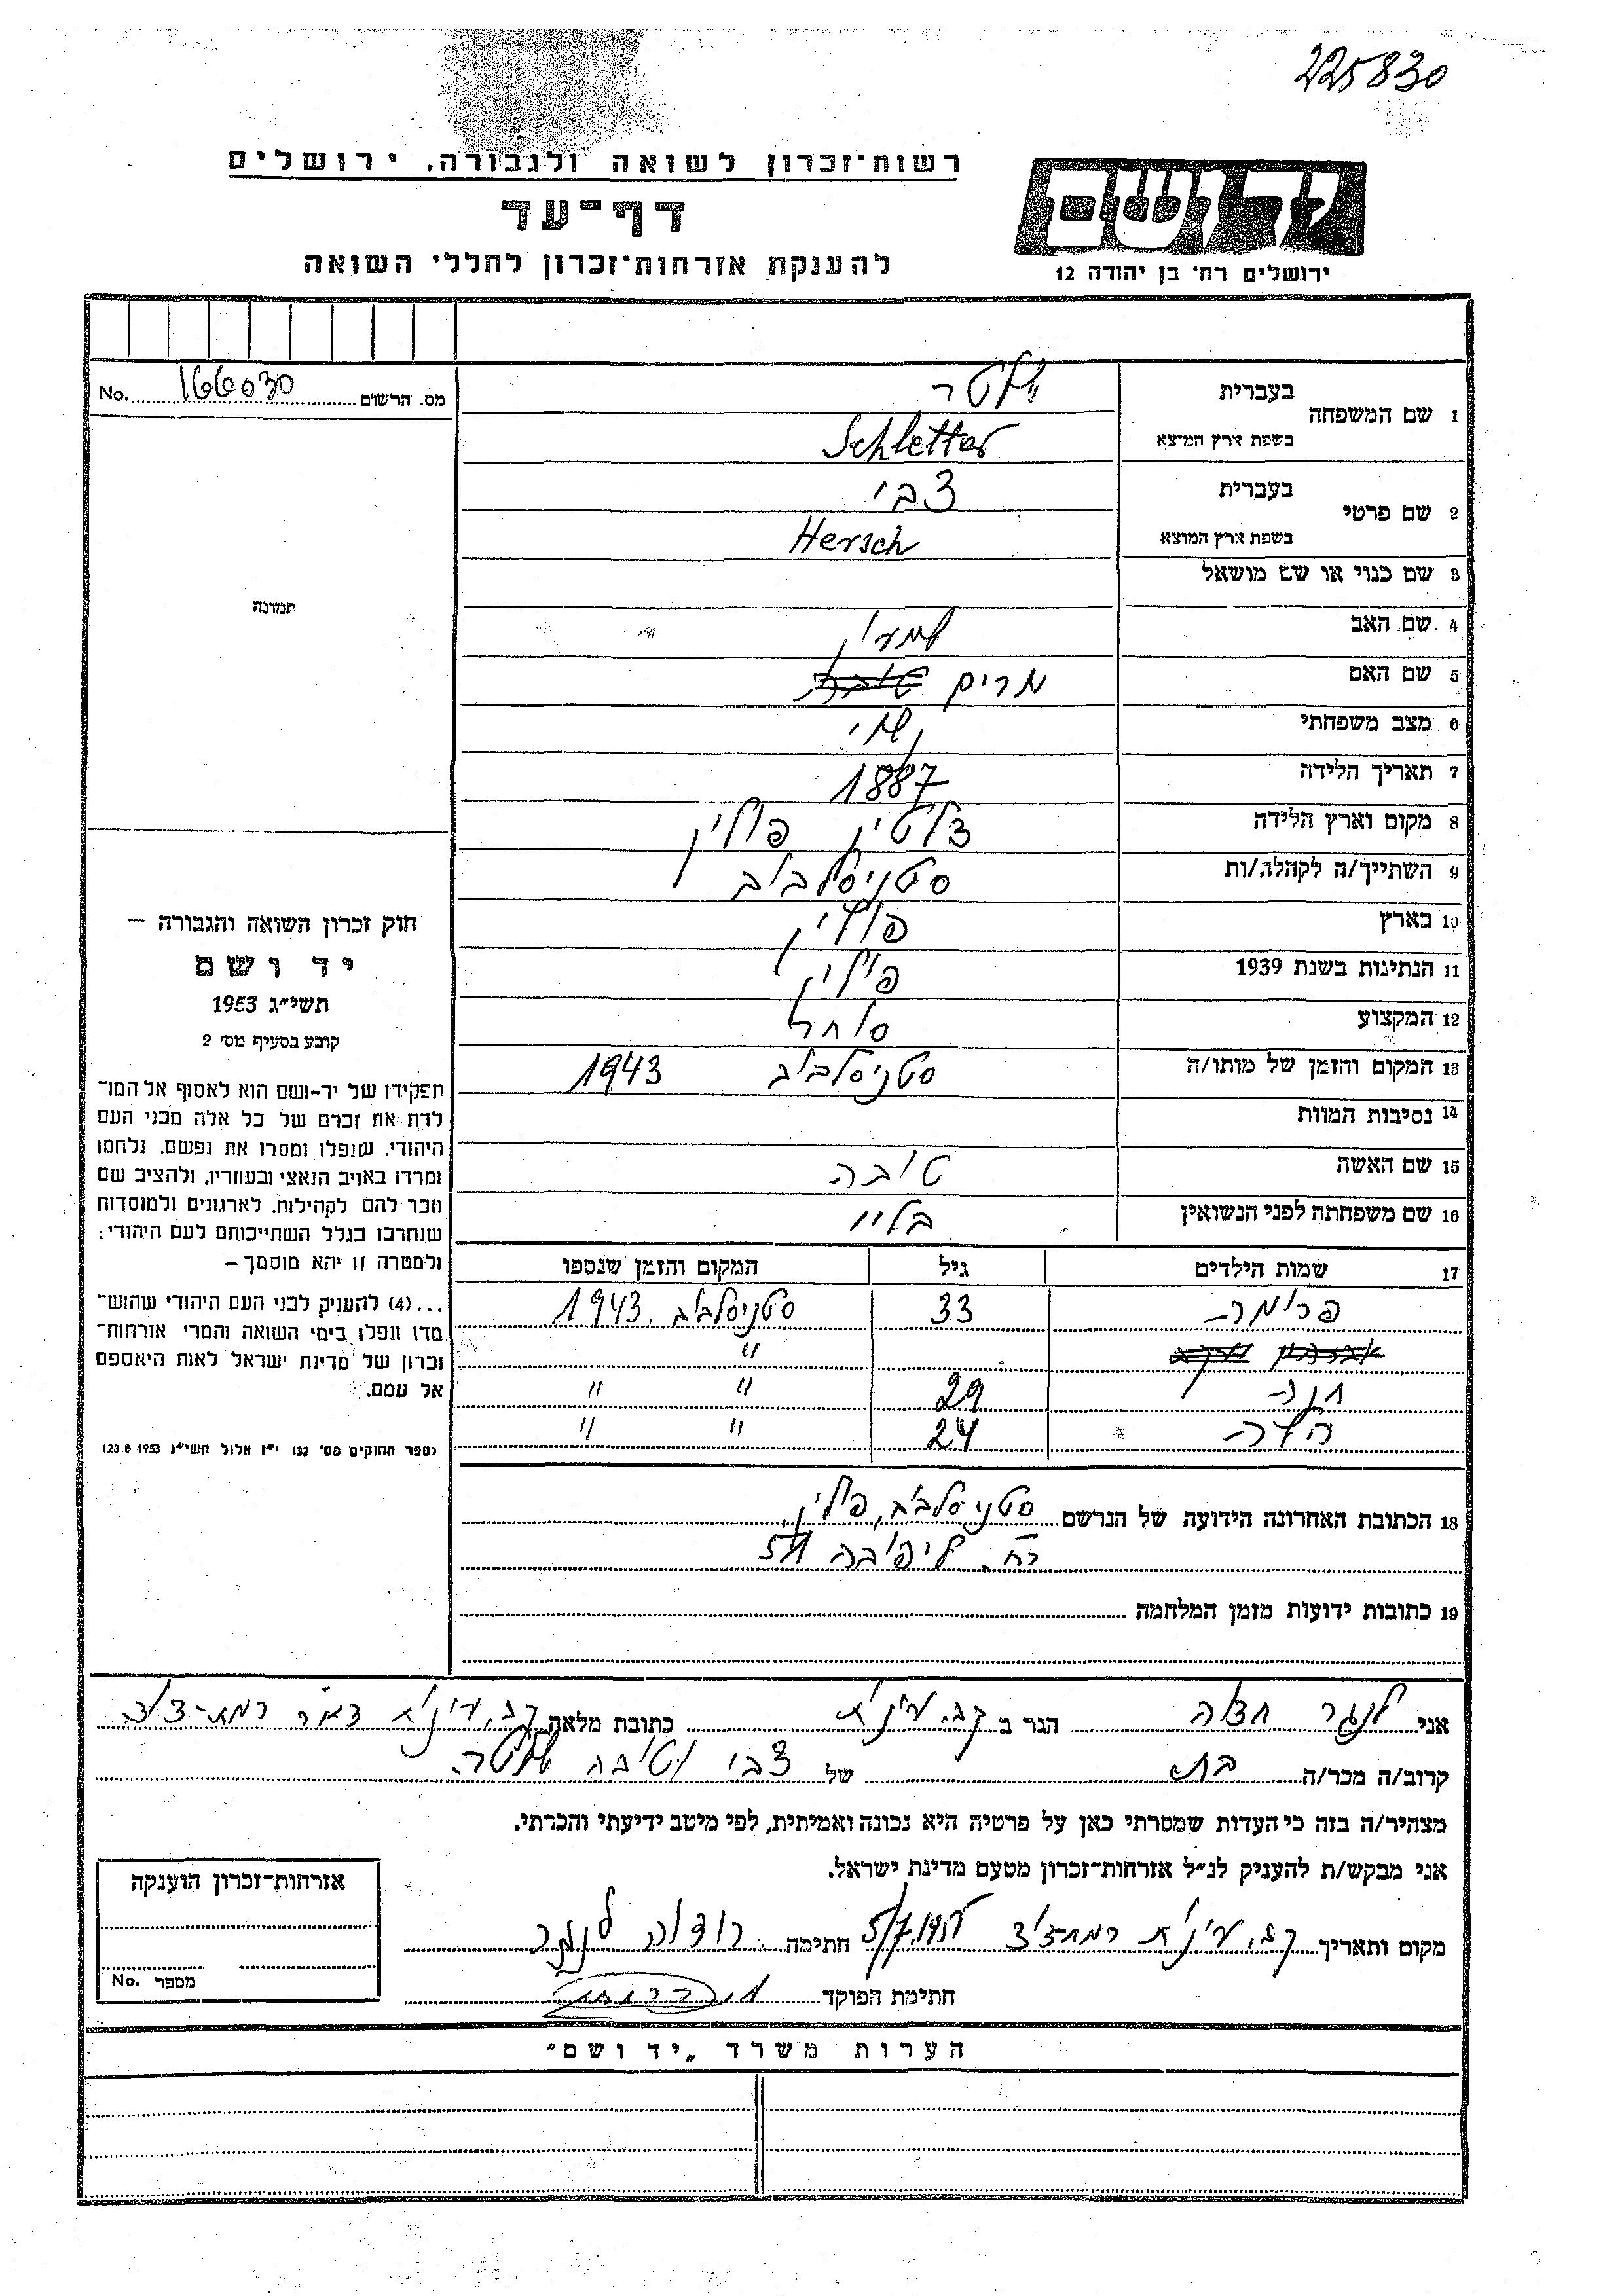 225830
רשות־זכרון לשואה ולגבורה, ירושלים
דף־עד
להענקת אזרחות־זכרון לחללי השואה
יד ושם
ירושלים רח׳ בן יהודה 12
מס. הרשום 166030 No.
1 שם המשפחה
בעברית שלטר
בשפת ארץ המוצא Schletter
2 שם פרטי
בעברית צבי
בשפת ארץ המוצא Hersch
3 שם כנוי או שם מושאל
4 שם האב שמעון
5 שם האם מרים
6 מצב משפחתי נשוי
7 תאריך הלידה 1887
8 מקום וארץ הלידה פולין
9 השתייך/ה לקהלה/ות סטניסלבוב
10 בארץ פולין
11 הנתינות בשנת 1939 פולין
12 המקצוע סוחר
13 המקום והזמן של מותו/ה סטניסלבוב 1943
14 נסיבות המוות
15 שם האשה טובה
16 שם משפחתה לפני הנשואין בלוי
17 שמות הילדים גיל המקום והזמן שנספו
פרומה 33 סטניסלבוב 1943
"
חנה 29 " "
24 " "
18 הכתובת האחרונה הידועה של הנרשם סטניסלבוב, פולין,
רח.
19 כתובות ידועות מזמן המלחמה
תמונה
חוק זכרון השואה והגבורה —
יד ושם
תשי״ג 1953
קובע בסעיף מס׳ 2
תפקידו של יד-ושם הוא לאסוף אל המו־
לדת את זכרם של כל אלה מבני העם
היהודי, שנפלו ומסרו את נפשם, נלחמו
ומרדו באויב הנאצי ובעוזריו, ולהציב שם
וזכר להם לקהילות, לארגונים ולמוסדות
שנחרבו בגלל השתייכותם לעם היהודי;
ולמטרה זו יהא מוסמך —
...(4) להעניק לבני העם היהודי שהוש־
מדו ונפלו בימי השואה והמרי אזרחות־
זכרון של מדינת ישראל לאות היאספם
אל עמם.
(ספר החוקים מס׳ 132 י״ז אלול תשי״ג 28.8.1953)
אני לנגר הגר ב קב. כתובת מלאה קב. דאר רמת-
קרוב/ה מכר/ה בת של צבי וטובה שלטר
מצהיר/ה בזה כי העדות שמסרתי כאן על פרטיה היא נכונה ואמיתית, לפי מיטב ידיעתי והכרתי.
אני מבקש/ת להעניק לנ״ל אזרחות־זכרון מטעם מדינת ישראל.
מקום ותאריך קב. חתימה לנגר
חתימת הפוקד
אזרחות־זכרון הוענקה
מספר No.
הערות משרד „יד ושם״